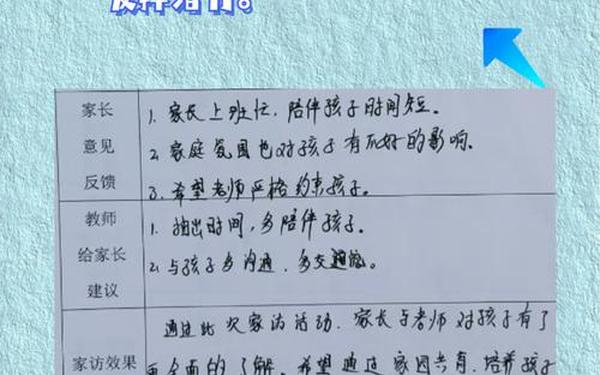 家长 1. 家长上班忙,陪伴孩子时间短。
意见 2. 家庭氛围也对孩子有不好的影响。
反馈 3. 希望老师严格约束孩子。
教师 1. 抽出时间,多陪伴孩子。
给家长 2. 与孩子多沟通、多交流。
建议
通过此次家访活动,家长与老师对孩子有了
家访效果 更全面的了解。希望通过家园共育,培养孩子